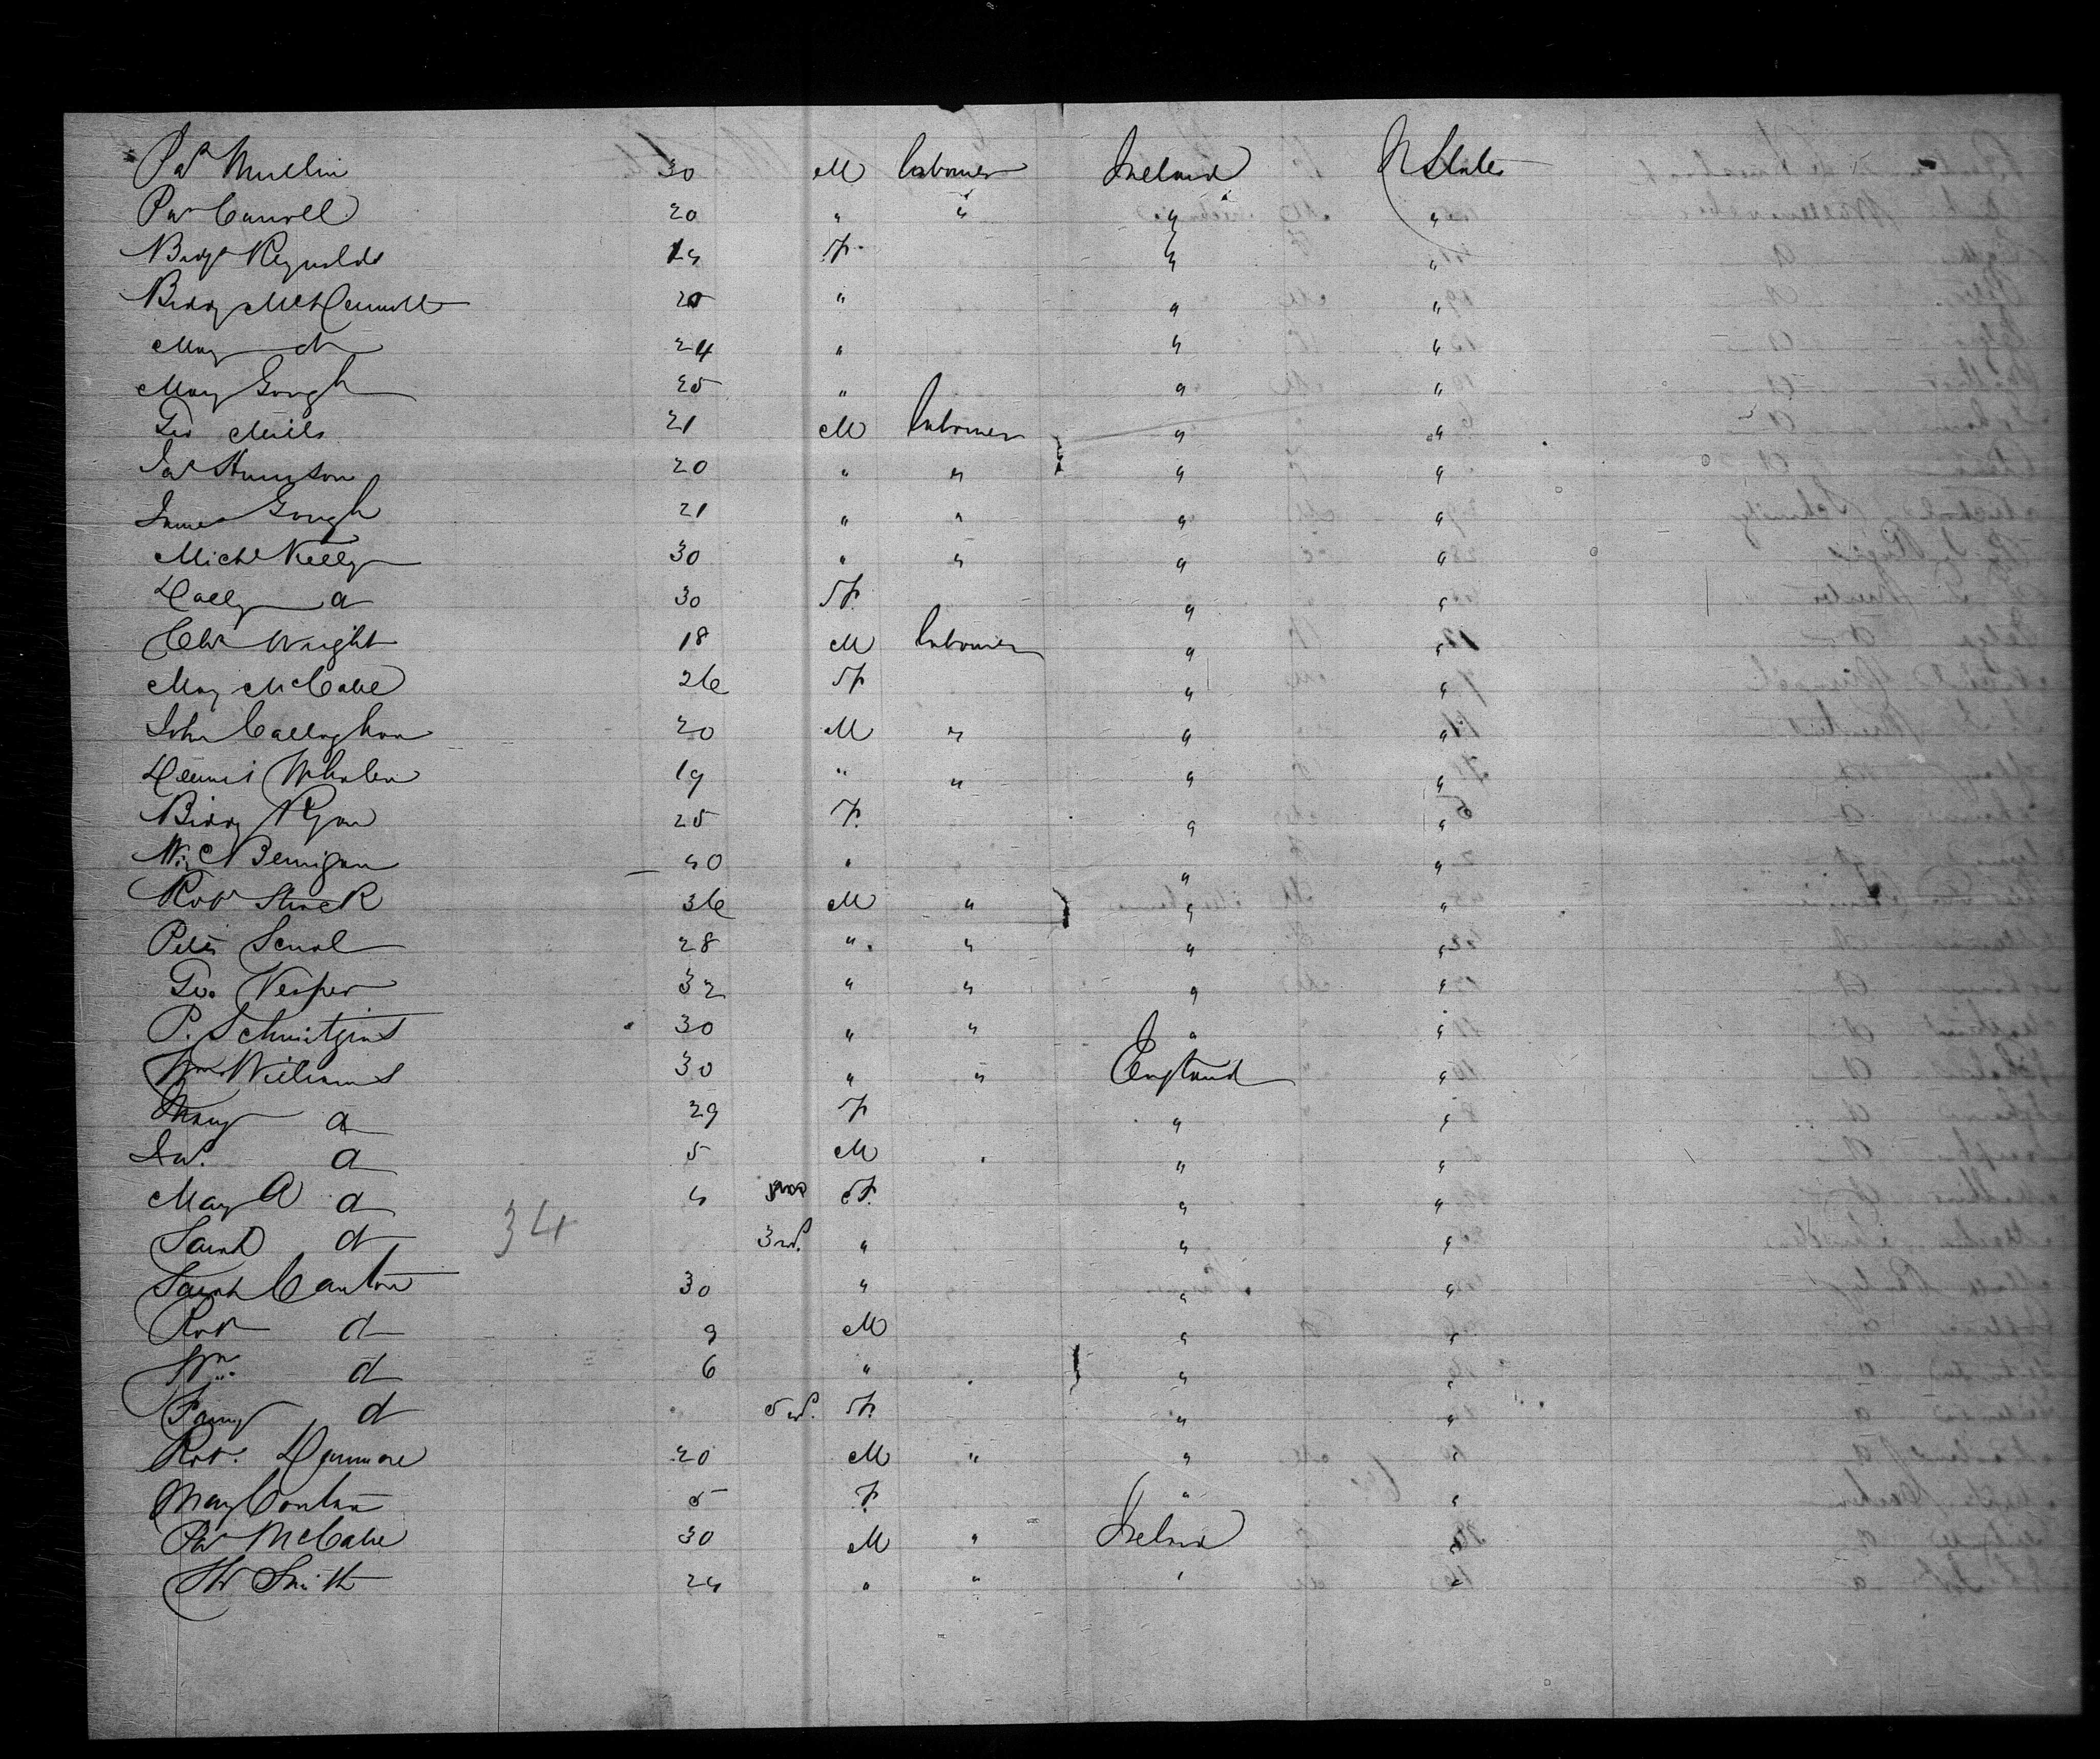 Pat Mullin 30 M Labourer Ireland U States
Pat Carroll 20 " " " "
Bidgt Reynolds F " "
Biddy McDermott 20 " " "
Mary d 24 " " "
Mary Gough 25 " " "
Geo Mills 21 M Labourer " "
Jas 20 " " " "
James Gough 21 " " " "
Michl Kelly 30 " " " "
d 30 F " "
Wright 18 M Labourer " "
Mary McCabe 26 F " "
John Callaghan 20 M " " "
Dennis Whalen 19 " " " "
Biddy Ryan 25 F " "
40 " " "
Robt Strack 36 M " " "
Peter 28 " " " "
Geo. Vesper 32 " " " "
P. 30 " " " "
Wm Williams 30 " " England "
Mary d 29 F " "
Jas. d 5 M " "
Mary A d 4 F " "
Sarah d 3 " " "
34
Sarah Canton 30 " " "
Robt d 9 M " "
Wm d 6 " " "
Fanny d 5 F. " "
Robt. 20 M " " "
Mary 5 F " "
Pat McCabe 30 M " Ireland "
Smith 24 " " " "